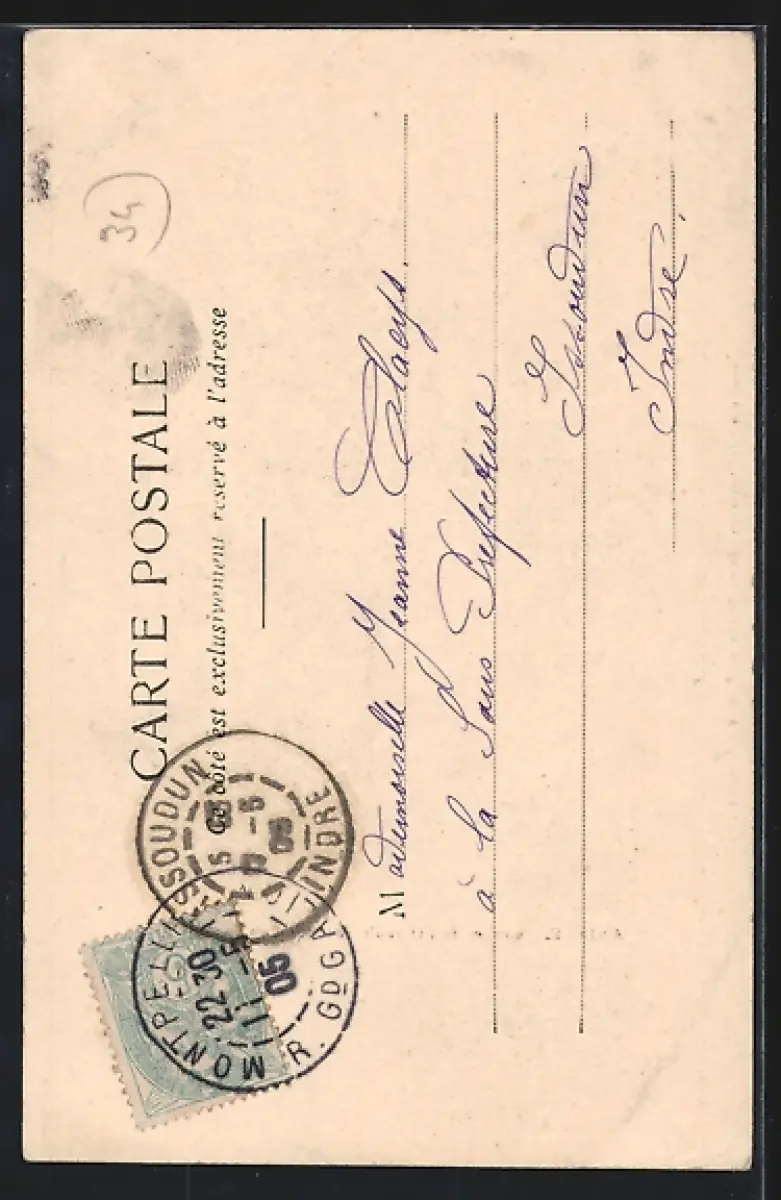 34
CARTE POSTALE
Ce côté est exclusivement reservé à l'adresse
Mademoiselle Jeanne
à la Sous Prefecture
Issoudun
Indre.
ISSOUDUN
INDRE
MONTPELLIER
22 30
11 - 5
05
R. GD GAL